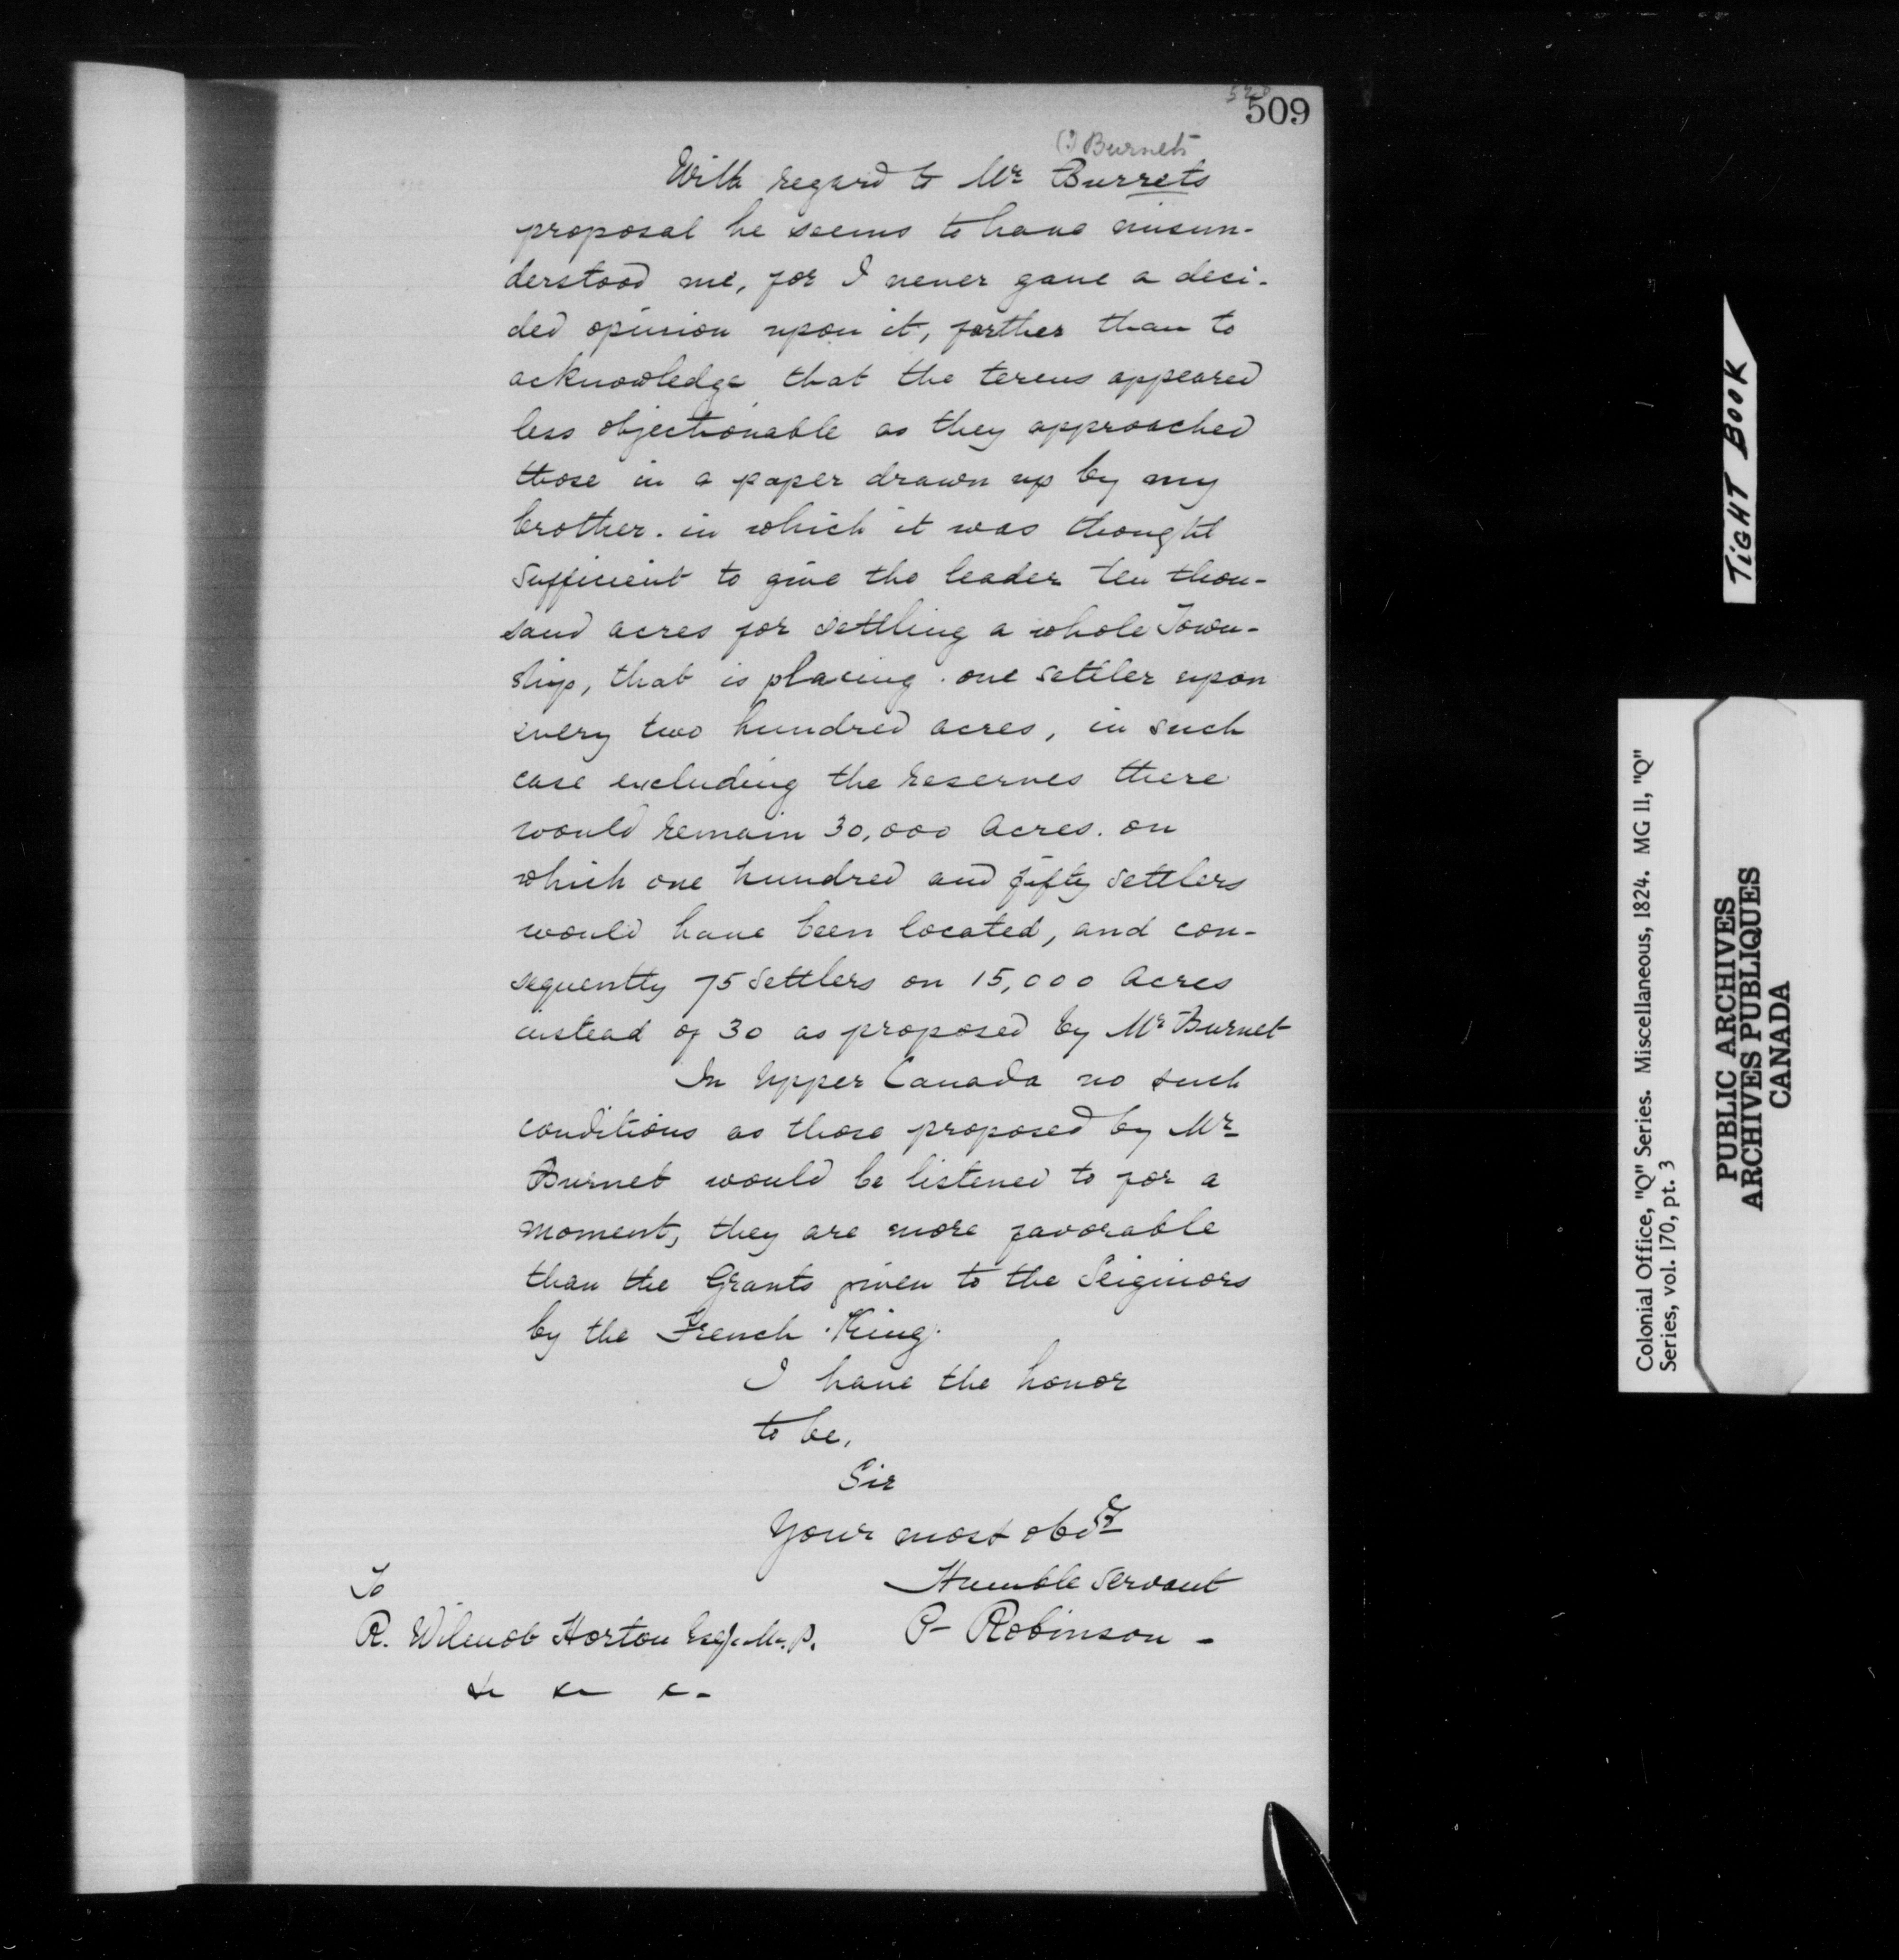 509
(?) Burnets
With regard to Mr Burrets
proposal he seems to have misun-
derstood me, for I never gave a deci-
ded opinion upon it, farther than to
acknowledge that the terms appeared
less objectionable as they approached
those in a paper drawn up by my
brother. in which it was thought
sufficient to give the leader ten thou-
sand acres for settling a whole Town-
ship, that is placing one settler upon
every two hundred acres, in such
case excluding the reserves there
would remain 30,000 acres. on
which one hundred and fifty settlers
would have been located, and con-
sequently 75 settlers on 15,000 acres
instead of 30 as proposed by Mr Burnet
In Upper Canada no such
conditions as those proposed by Mr
Burnet would be listened to for a
moment, they are more favorable
than the Grants given to the Seigniors
by the French King.
I have the honor
to be,
Sir
Your most obdt
Humble servant
P- Robinson -
To
R. Wilmot Horton Esq. M.P.
&c &c &c-
TIGHT BOOK
Colonial Office, "Q" Series. Miscellaneous, 1824. MG 11, "Q"
Series, vol. 170, pt. 3
PUBLIC ARCHIVES
ARCHIVES PUBLIQUES
CANADA